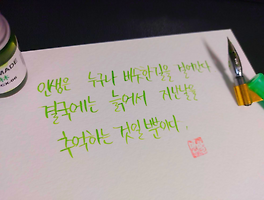 인생은 누구나 비슷한 길을 걸어간다
결국에는 늙어서 지난날을
추억하는 것일 뿐이다.
MADE